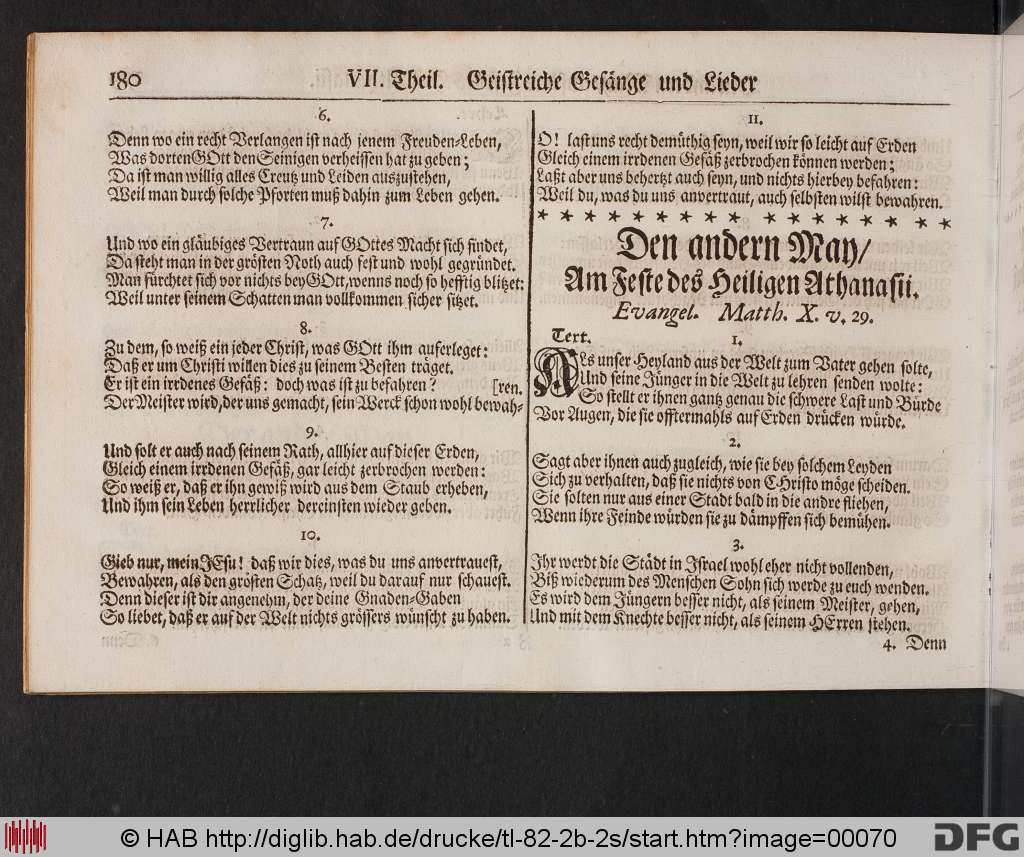 180 VII. Theil. Geistreiche Gesänge und Lieder
6.
Denn wo ein recht Verlangen ist nach jenem Freuden-Leben,
Was dorten GOtt den Seinigen verheissen hat zu geben;
Da ist man willig alles Creutz und Leiden auszustehen,
Weil man durch solche Pforten muß dahin zum Leben gehen.
7.
Und wo ein gläubiges Vertraun auf GOttes Macht sich findet,
Da steht man in der grösten Noth auch fest und wohl gegründet.
Man fürchtet sich vor nichts bey GOtt, wenns noch so hefftig blitzet:
Weil unter seinem Schatten man vollkommen sicher sitzet.
8.
Zu dem, so weiß ein jeder Christ, was GOtt ihm auferleget:
Daß er um Christi willen dies zu seinem Besten träget.
Er ist ein irrdenes Gefäß: doch was ist zu befahren? [ren.
Der Meister wird, der uns gemacht, sein Werck schon wohl bewah-
9.
Und solt er auch nach seinem Rath, allhier auf dieser Erden,
Gleich einem irrdenen Gefäß, gar leicht zerbrochen werden:
So weiß er, daß er ihn gewiß wird aus dem Staub erheben,
Und ihm sein Leben herrlicher dereinsten wieder geben.
10.
Gieb nur, mein JEsu! daß wir dies, was du uns anvertrauest,
Bewahren, als den grösten Schatz, weil du darauf nur schauest.
Denn dieser ist dir angenehm, der deine Gnaden-Gaben
So liebet, daß er auf der Welt nichts grössers wünscht zu haben.
11.
O! last uns recht demüthig seyn, weil wir so leicht auf Erden
Gleich einem irrdenen Gefäß zerbrochen können werden;
Laßt aber uns behertzt auch seyn, und nichts hierbey befahren:
Weil du, was du uns anvertraut, auch selbsten wilst bewahren.
* * * * * * * * * * * * * * * * * *
Den andern May/
Am Feste des Heiligen Athanasii.
Evangel. Matth. X. v. 29.
Text. 1.
Als unser Heyland aus der Welt zum Vater gehen solte,
Und seine Jünger in die Welt zu lehren senden wolte:
So stellt er ihnen gantz genau die schwere Last und Bürde
Vor Augen, die sie offtermahls auf Erden drücken würde.
2.
Sagt aber ihnen auch zugleich, wie sie bey solchem Leyden
Sich zu verhalten, daß sie nichts von CHristo möge scheiden.
Sie solten nur aus einer Stadt bald in die andre fliehen,
Wenn ihre Feinde würden sie zu dämpffen sich bemühen.
3.
Ihr werdt die Städt in Israel wohl eher nicht vollenden,
Biß wiederum des Menschen Sohn sich werde zu euch wenden.
Es wird dem Jüngern besser nicht, als seinem Meister, gehen,
Und mit dem Knechte besser nicht, als seinem HErren stehen.
4. Denn
© HAB http://diglib.hab.de/drucke/tl-82-2b-2s/start.htm?image=00070
DFG